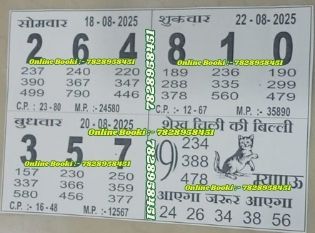 सोमवार 18-08-2025
2 6 4
Online Booki :- 7828958451
237 240 220
390 346 149
499 790 446
C.P. :- 23 - 80 M.P. :- 24580
शुक्रवार 22-08-2025
8 1 0
Online Booki :- 7828958451
189 236 190
288 335 668
378 560 479
C.P. :- 12 - 67 M.P. :- 35890
7828958451
बुधवार 20-08-2025
Online Booki :- 7828958451
3 5 7
157 230 250
337 366 359
580 456 377
C.P. :- 16 - 48 M.P. :- 12567
7828958451
शेख चिल्ली की बिल्ली
Online Booki :- 7828958451
9 234
388
478
म्याऊ
आएगा जरूर आएगा
24 26 34 38 56